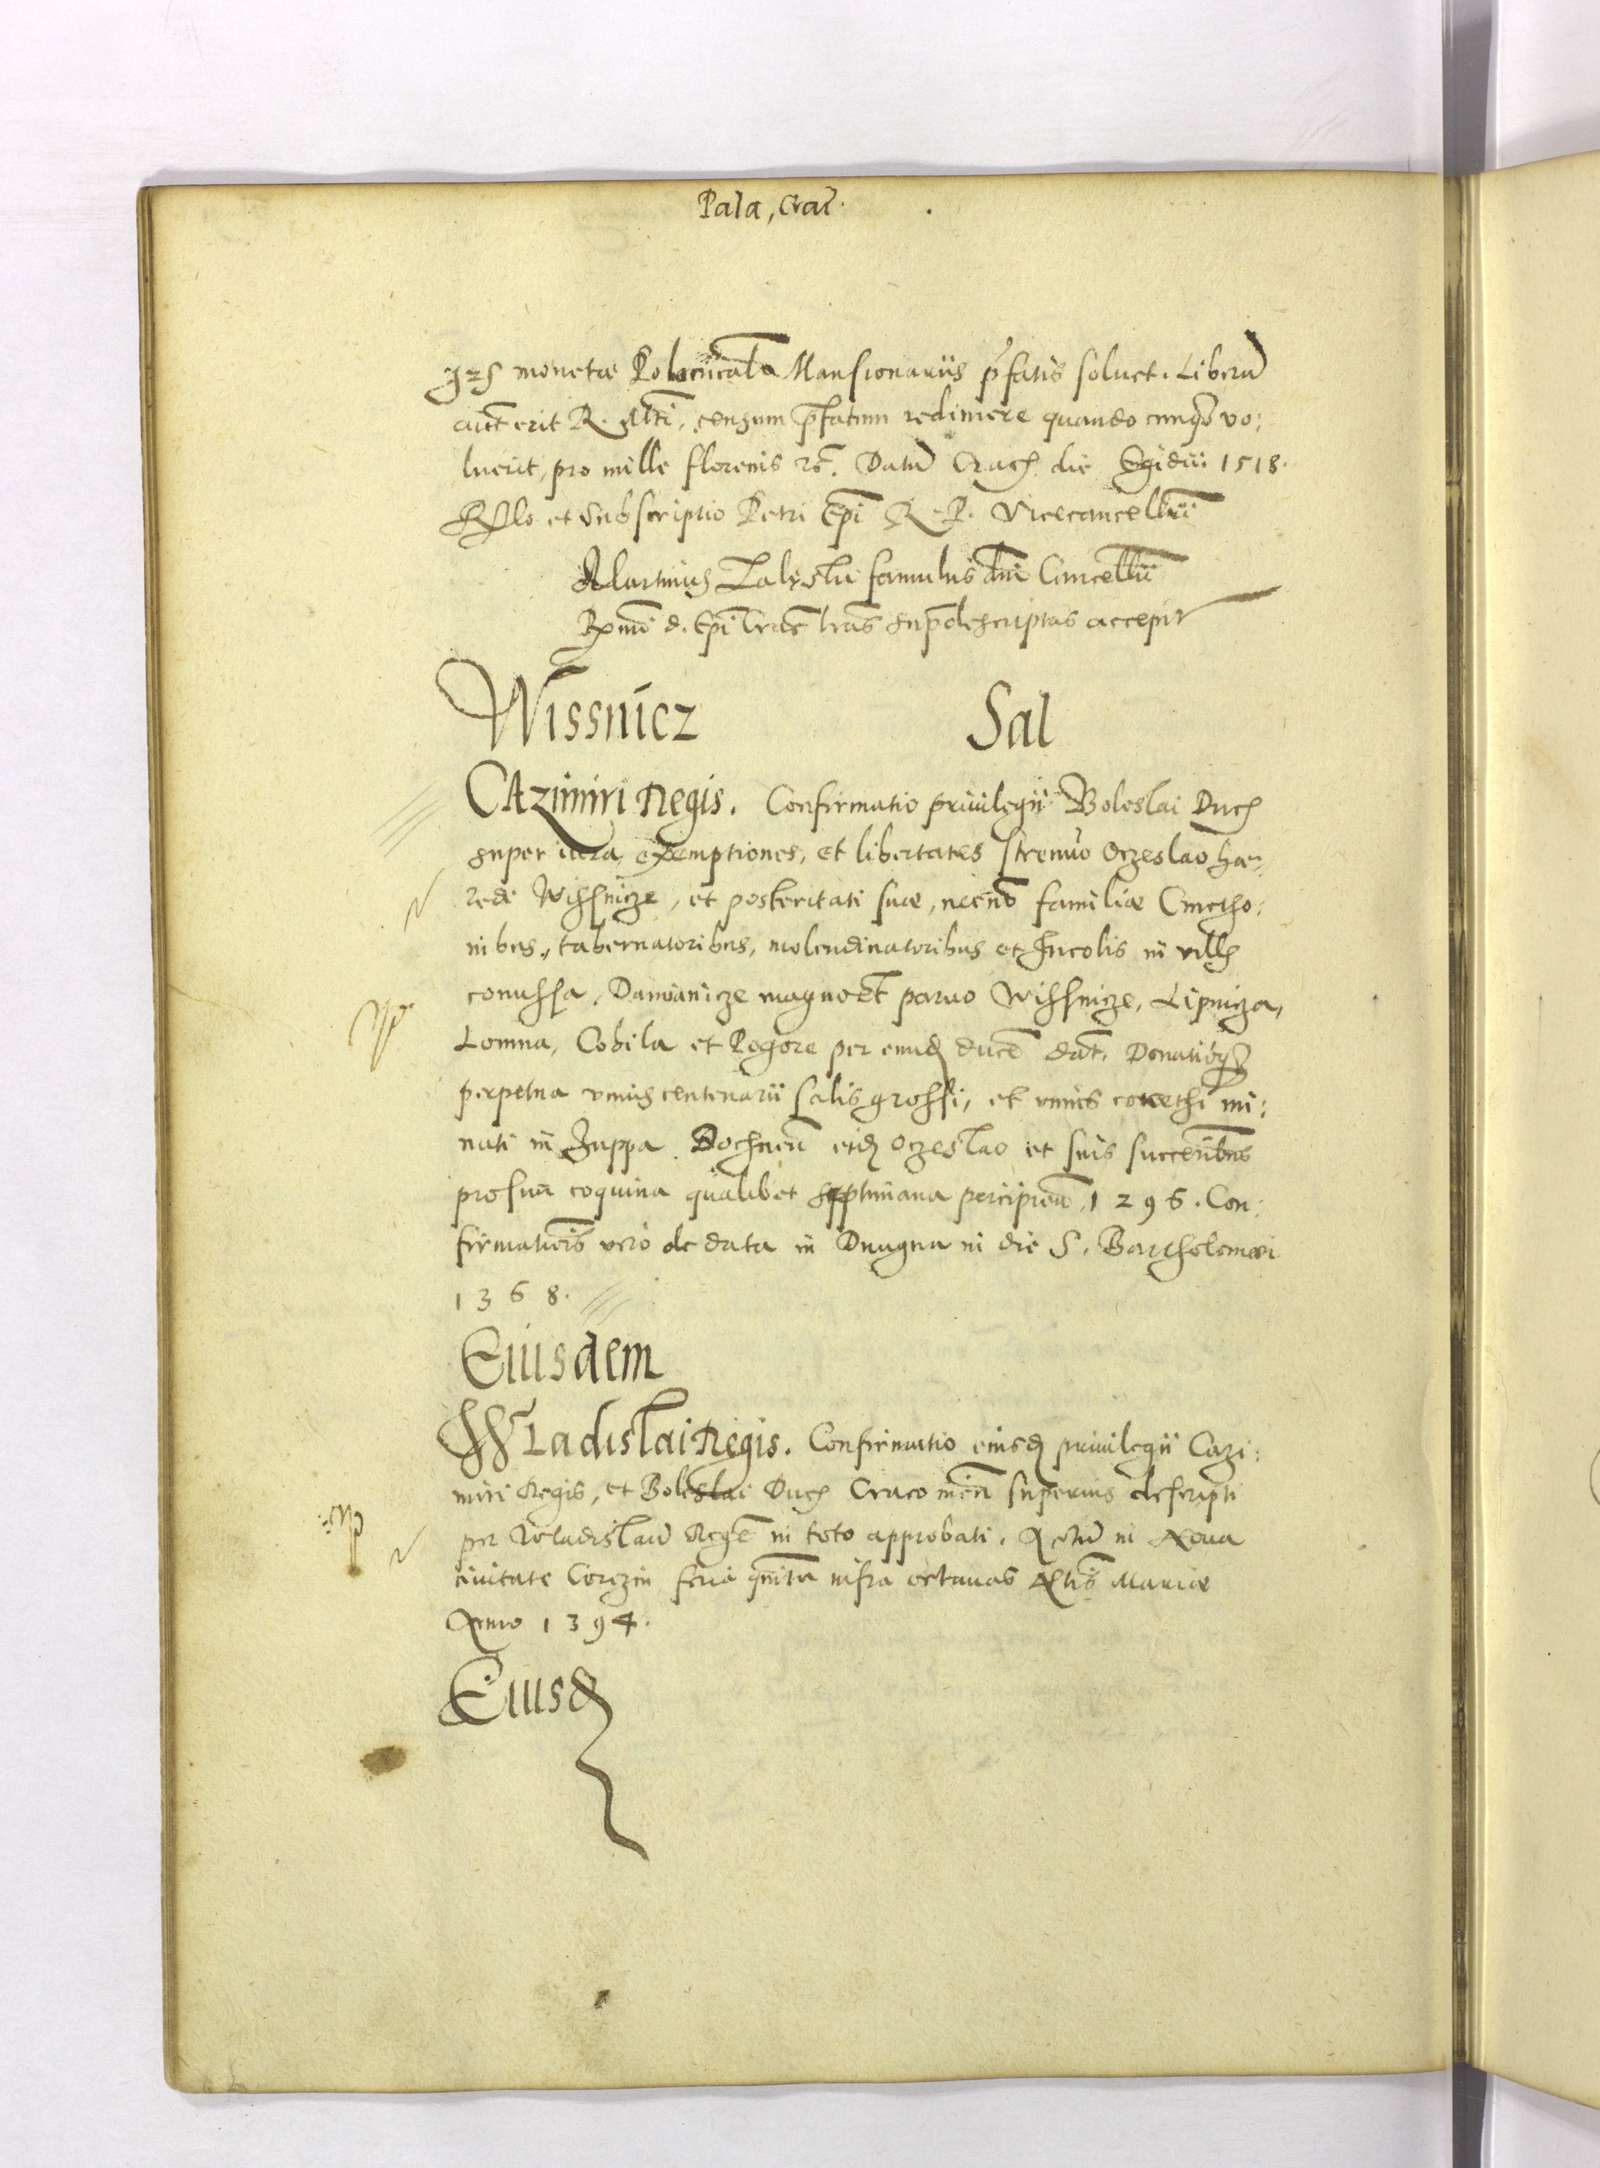 Pala, Crac̄.
monetæ Polonicalis Mansionariis p̄fatis soluet. Liberū
aut̄ erit R. Mti, censum p̄fatum redimere quando cunq3 vo:
luerit, pro mille florenis Datū Crac. die Egidii 1518.
et Subscriptio Petri Ep̄i R. P. Vicecancellarii
Martinus Zaleski famulus dn̄i Cancellarii
d. Ep̄i Crac̄ lr̄as supradescriptas accepit
Wissnicz Sal
CAzimiri Regis. Confirmatio priuilegii Boleslai Ducis
super iura, exemptiones, et libertates strenuo Oczeslao hæ-
redi Wissnicze, et posteritati suæ, necnō familiæ Cmetho:
nibus, tabernatoribus, molendinatoribus et Incolis in villis
conussa, Damianicze magno et paruo Wissnicze, Lipnicza,
Lomna, Cobila et Pogore per eund ducē dat. Donatioq3
perpetua vnius centenarii salis grossi, et vnius corethi mi:
nuti in Zuppa Bochnen̄ eid Oczeslao et suis succerībus
pro sua coquina qualibet septimana percipien̄. 1296. Con:
firmationis vero de data in Dnugna in die S. Bartholomæi
1368.
Eiusdem
WLadislai Regis. Confirmatio eiusd priuilegii Cazi:
miri Regis, et Boleslai Ducis Cracouien̄ superius descripti
per Wladislaū Regē in toto approbati. Actū in Noua
ciuitate Corczin feria quinta infra octauas Nt̄is Mariæ
Anno 1394.
Eiusd